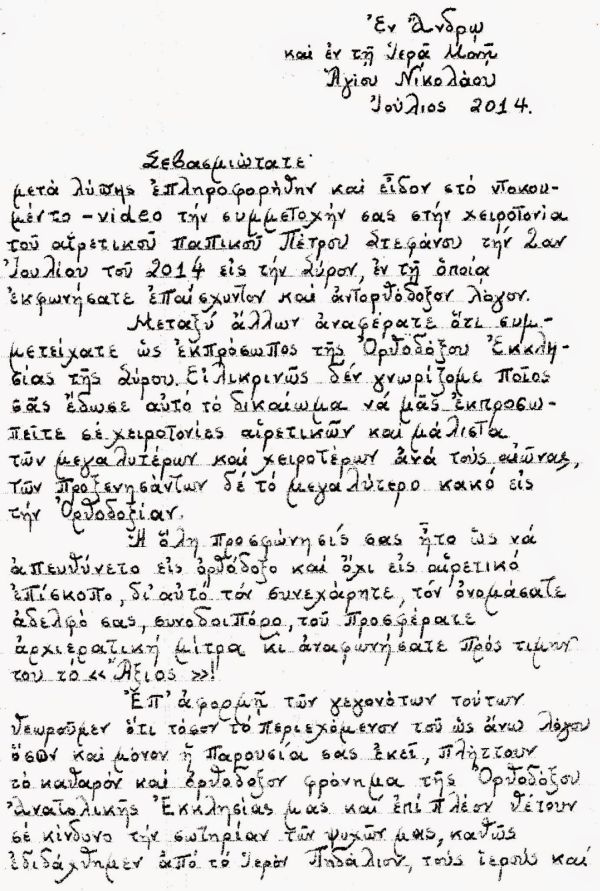 Ἐν Ἄνδρῳ
καί ἐν τῇ Ἱερᾷ Μονῇ
Ἁγίου Νικολάου
Ἰούλιος 2014.
Σεβασμιώτατε·
μετά λύπης ἐπληροφορήθην καί εἶδον στό ντοκου-
μέντο-video την συμμετοχήν σας στήν χειροτονία
τοῦ αἱρετικοῦ παπικοῦ Πέτρου Στεφάνου τήν 2αν
Ἰουλίου τοῦ 2014 εἰς τήν Σύρον, ἐν τῇ ὁποία
ἐκφωνήσατε ἐπαίσχυντον καί ἀντορθόδοξον λόγον.
Μεταξύ ἄλλων ἀναφέρατε ὅτι συμ-
μετείχατε ὡς ἐκπρόσωπος τῆς Ὀρθοδόξου Ἐκκλη-
σίας τῆς Σύρου. Εἰλικρινῶς δέν γνωρίζομε ποῖος
σᾶς ἔδωσε αὐτό τό δικαίωμα νά μᾶς ἐκπροσω-
πεῖτε σέ χειροτονίες αἱρετικῶν καί μάλιστα
τῶν μεγαλυτέρων καί χειροτέρων ἀνά τούς αἰῶνας,
τῶν προξενησάντων δέ τό μεγαλύτερο κακό εἰς
τήν Ὀρθοδοξίαν.
Ἡ ὅλη προσφώνησίς σας ἦτο ὡς νά
ἀπευθύνετο εἰς ὀρθόδοξο καί ὄχι εἰς αἱρετικό
ἐπίσκοπο, δι' αὐτό τόν συνεχάρητε, τόν ὀνομάσατε
ἀδελφό σας, συνοδοιπόρο, τοῦ προσφέρατε
ἀρχιερατική μίτρα κι ἀναφωνήσατε πρός τιμήν
του τό «Ἄξιος»!
Ἐπ' ἀφορμῇ τῶν γεγονότων τούτων
θεωροῦμεν ὅτι τόσον τό περιεχόμενον τοῦ ὡς ἄνω λόγου
ὅσον καί μόνον ἡ παρουσία σας ἐκεῖ, πλήττουν
τό καθαρόν καί ὀρθόδοξον φρόνημα τῆς Ὀρθοδόξου
Ἀνατολικῆς Ἐκκλησίας μας καί ἐπί πλέον θέτουν
σέ κίνδυνο τήν σωτηρίαν τῶν ψυχῶν μας, καθώς
ἐδιδάχθημεν ἀπό τό Ἱερόν Πηδάλιον, τούς ἱερούς καί